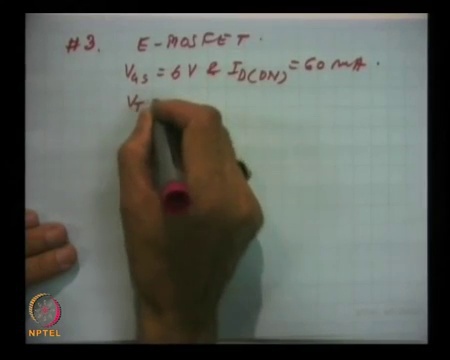 #3. E-MOSFET.
V_GS = 6 V & I_D(ON) = 60 mA.
V_T
NPTEL